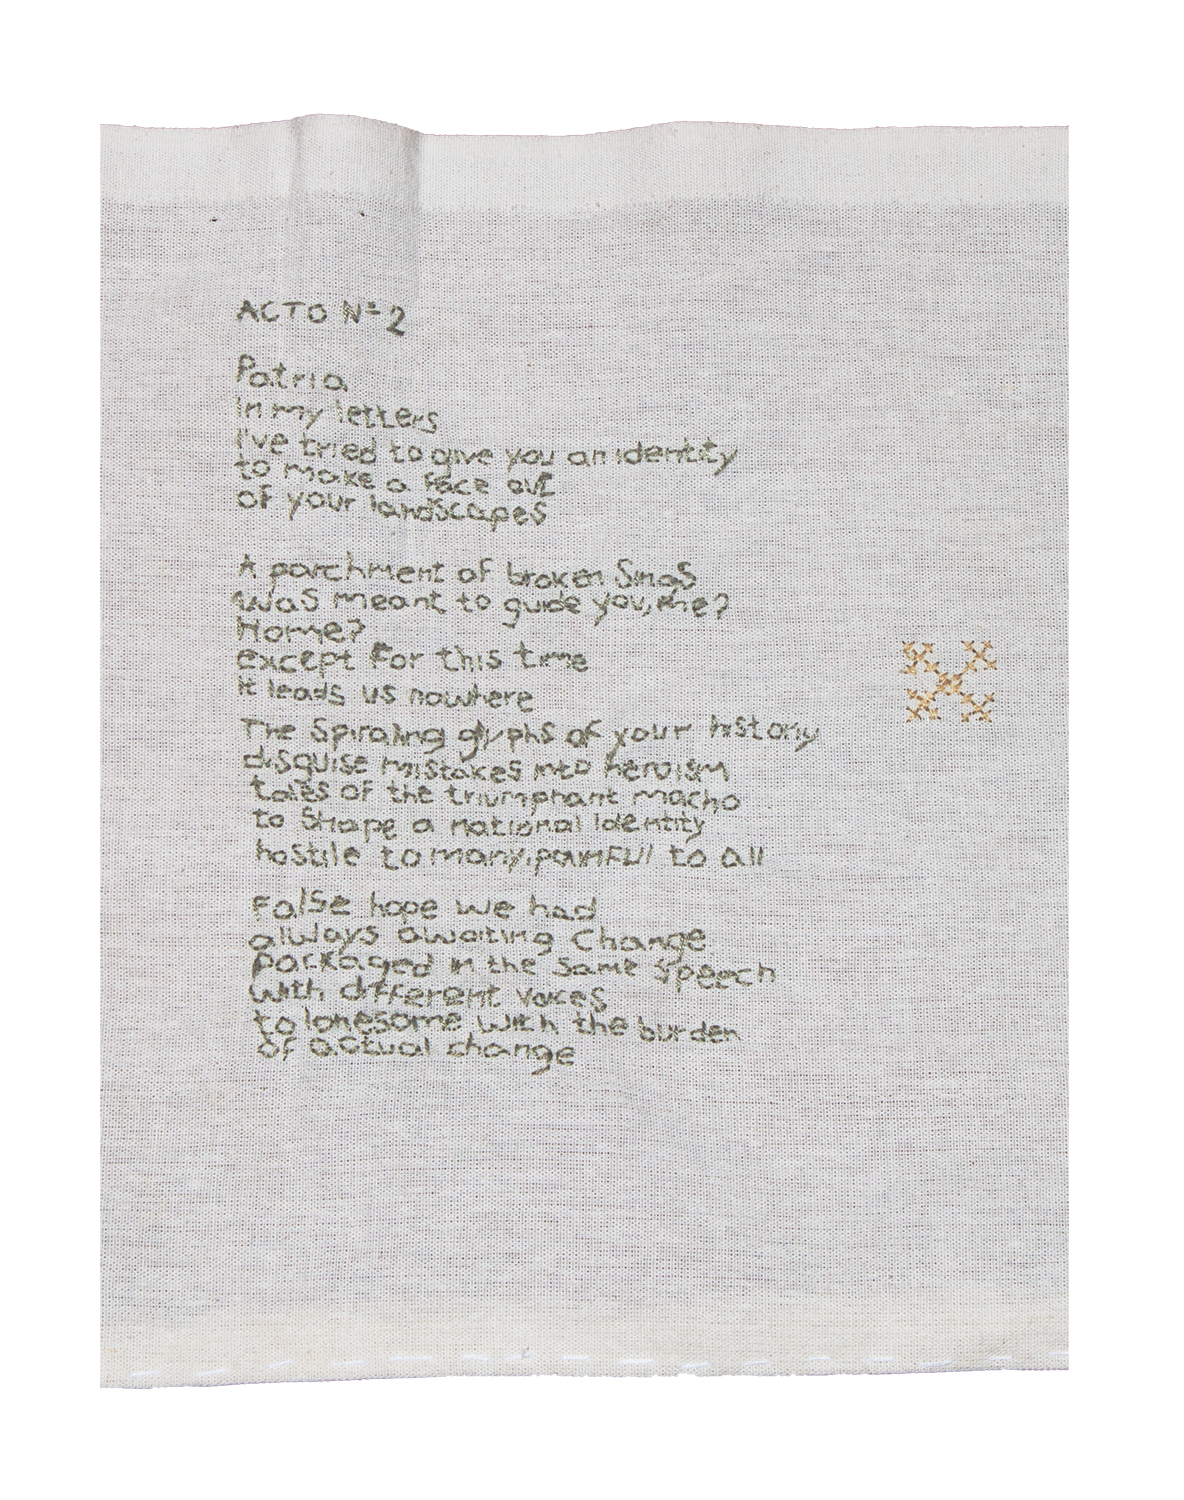 ACTO Nº 2
Patria
In my letters
I've tried to give you an identity
to make a face out
of your landscapes
A parchment of broken Sings
was meant to guide you, me?
Home?
except for this time
it leads us nowhere
The Spiraling glyphs of your history
disguise mistakes into heroism
tales of the triumphant macho
to Shape a national Identity
hostile to many, painFUll to all
False hope we had
always awaiting Change
packaged in the Same Speech
with different voices
to lonesome with the burden
of actual change